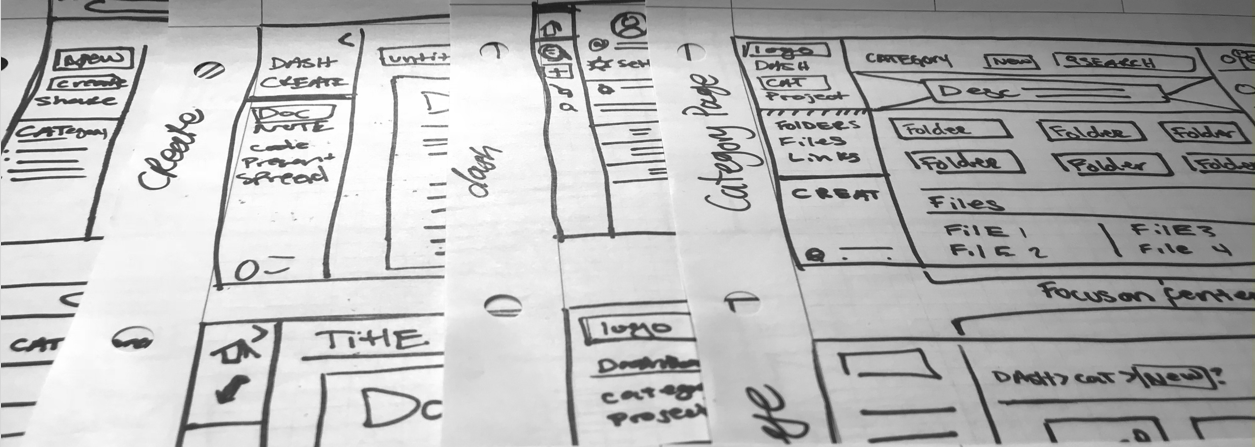 New
Create
Share
CATegory
CAT
Create
<
DASH
CREATE
Doc
NOTE
Code
Present
Spread
untit
>
TiTLE
Do
dash
Set
logo
Dashboa
catego
Project
Category Page
logo
DASH
CAT
Project
FOLDERS
Files
Links
CREAT
CATEGORY
New
SEARCH
Desc
Folder
Folder
Folder
Folder
Folder
Folder
Files
FiLE 1
FiLE 3
FiLE 2
File 4
Focus on center
DASH > cat > New?